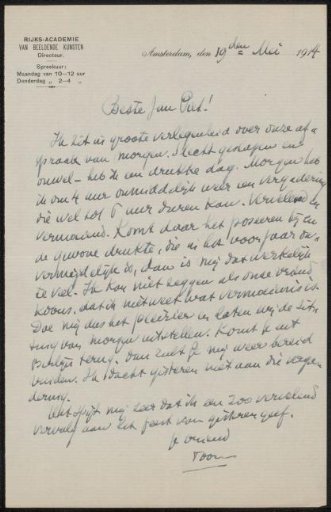 RIJKS-ACADEMIE
VAN BEELDENDE KUNSTEN
Directeur.
Spreekuur:
Maandag van 10—12 uur
Donderdag „ 2—4 „
Amsterdam, den 19den Mei 1914
Beste Jan Piet!
Ik zit in groote verlegenheid over onze af-
spraak van morgen. Slecht geslapen en
onwel — heb ik een drukke dag. Morgen heb
ik om 4 uur onmiddelijk weer een vergadering
die wel tot 6 uur duren kan.
vermoeiend. Komt daar het poseeren bij en
de gewone drukte, die in het voorjaar on-
vermijdelijk is, dan is mij dat werkelijk
te veel. Ik kan niet zeggen als onze vriend
dat ik niet weet wat vermoeienis is.
Doe mij dus het pleizier en laten wij de zit-
ting van morgen uitstellen. Komt je uit
terug, dan zult je mij weer bereid
vinden. Ik dacht gisteren niet aan die verga-
dering.
Het spijt mij zeer dat ik een zoo vervelend
vervolg aan het feest van gisteren geef.
je vriend
Toon